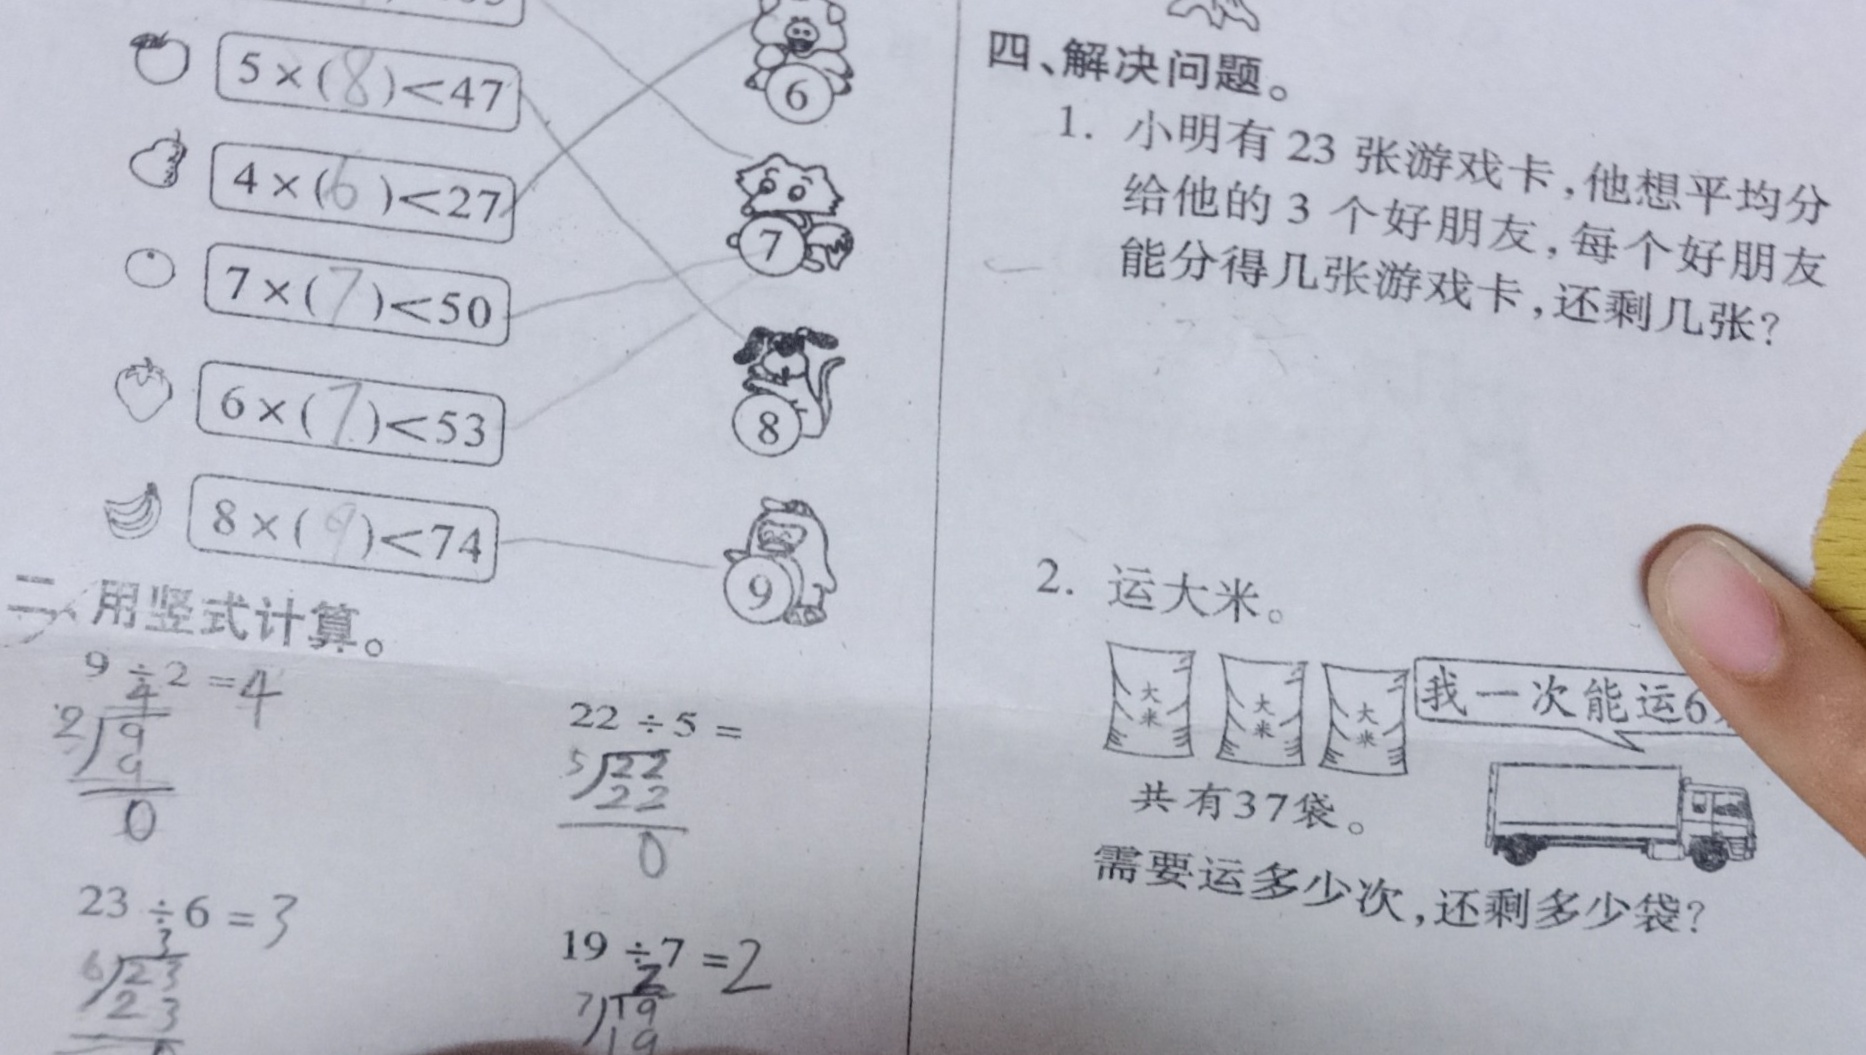 5×(8)<47
6
4×(6)<27
7
7×(7)<50
8
6×(7)<53
9
8×(9)<74
二、用竖式计算。
9÷2=4
4
2 9
9
0
22÷5=
5 22
22
0
23÷6=3
3
6 23
23
19÷7=2
2
7 19
19
四、解决问题。
1. 小明有 23 张游戏卡,他想平均分
给他的 3 个好朋友,每个好朋友
能分得几张游戏卡,还剩几张?
2. 运大米。
大米
大米
大米
我一次能运6
共有37袋。
需要运多少次,还剩多少袋?